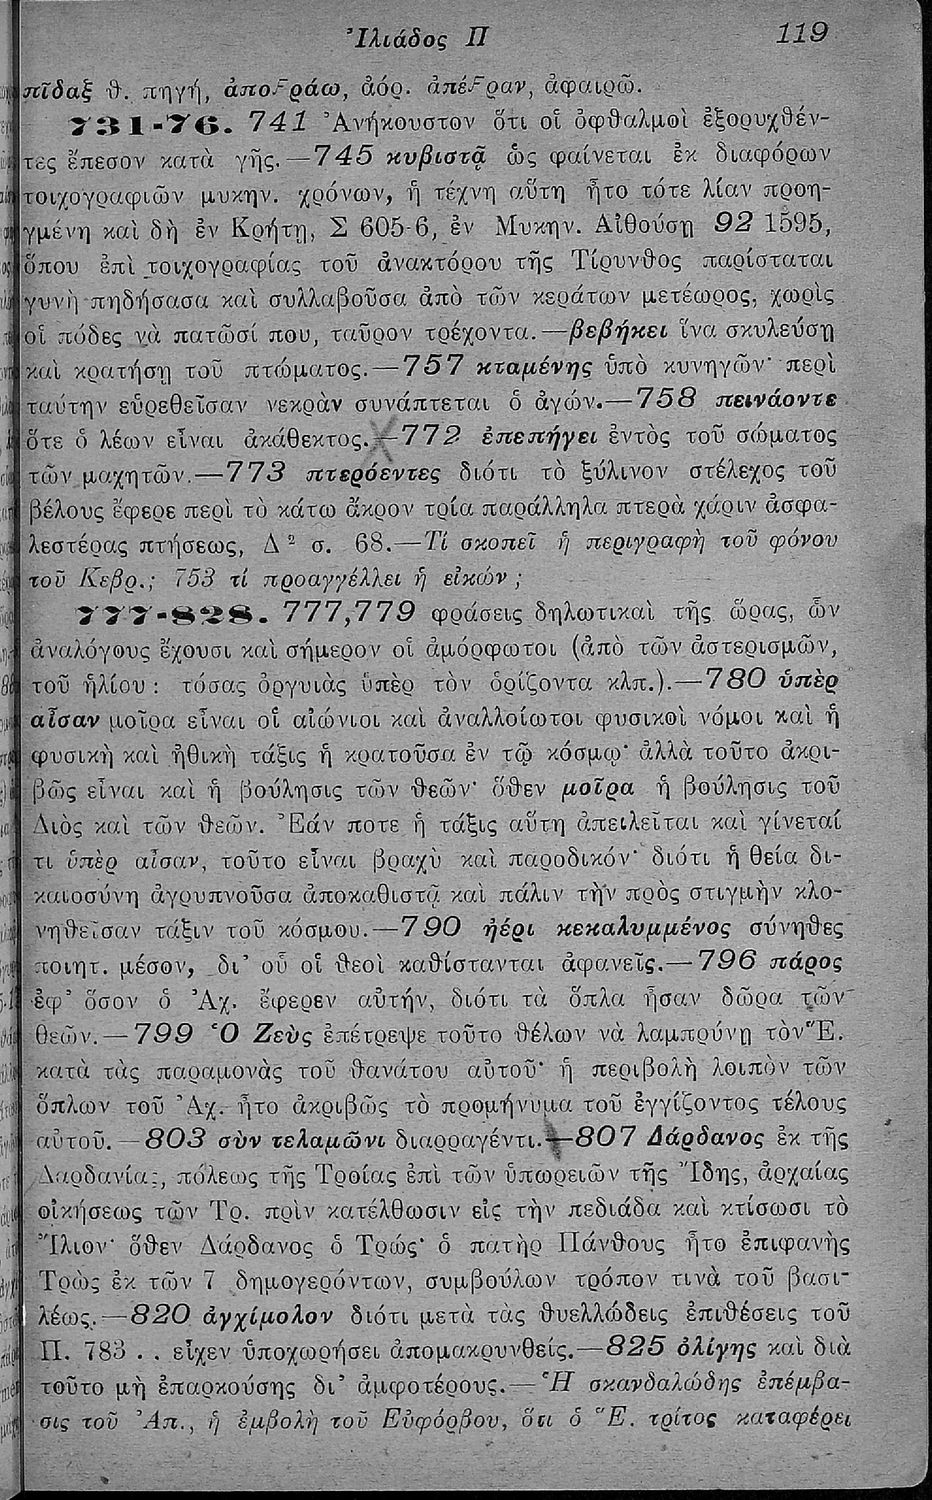 Ἰλιάδος Π 119
πῖδαξ ϑ. πηγή, ἀποϜράω, ἀόρ. ἀπέϜραν, ἀφαιρῶ.
731-76. 741 Ἀνήκουστον ὅτι οἱ ὀφθαλμοὶ ἐξορυχθέν-
τες ἔπεσον κατὰ γῆς.—745 κυβιστᾷ ὡς φαίνεται ἐκ διαφόρων
τοιχογραφιῶν μυκην. χρόνων, ἡ τέχνη αὕτη ἦτο τότε λίαν προη-
γμένη καὶ δὴ ἐν Κρήτῃ, Σ 605-6, ἐν Μυκην. Αἰθούσῃ 92 1595,
ὅπου ἐπὶ τοιχογραφίας τοῦ ἀνακτόρου τῆς Τίρυνθος παρίσταται
γυνὴ πηδήσασα καὶ συλλαβοῦσα ἀπὸ τῶν κεράτων μετέωρος, χωρὶς
οἱ πόδες νὰ πατῶσί που, ταῦρον τρέχοντα.—βεβήκει ἵνα σκυλεύσῃ
καὶ κρατήσῃ τοῦ πτώματος.—757 κταμένης ὑπὸ κυνηγῶν· περὶ
ταύτην εὑρεθεῖσαν νεκρὰν συνάπτεται ὁ ἀγών.—758 πεινάοντε
ὅτε ὁ λέων εἶναι ἀκάθεκτος.—772 ἐπεπήγει ἐντὸς τοῦ σώματος
τῶν μαχητῶν.—773 πτερόεντες διότι τὸ ξύλινον στέλεχος τοῦ
βέλους ἔφερε περὶ τὸ κάτω ἄκρον τρία παράλληλα πτερὰ χάριν ἀσφα-
λεστέρας πτήσεως, Δ² σ. 68.—Τί σκοπεῖ ἡ περιγραφὴ τοῦ φόνου
τοῦ Κεβρ.; 753 τί προαγγέλλει ἡ εἰκών;
777-828. 777,779 φράσεις δηλωτικαὶ τῆς ὥρας, ὧν
ἀναλόγους ἔχουσι καὶ σήμερον οἱ ἀμόρφωτοι (ἀπὸ τῶν ἀστερισμῶν,
τοῦ ἡλίου: τόσας ὀργυιὰς ὑπὲρ τὸν ὁρίζοντα κλπ.).—780 ὑπὲρ
αἶσαν μοῖρα εἶναι οἱ αἰώνιοι καὶ ἀναλλοίωτοι φυσικοὶ νόμοι καὶ ἡ
φυσικὴ καὶ ἠθικὴ τάξις ἡ κρατοῦσα ἐν τῷ κόσμῳ· ἀλλὰ τοῦτο ἀκρι-
βῶς εἶναι καὶ ἡ βούλησις τῶν θεῶν· ὅθεν μοῖρα ἡ βούλησις τοῦ
Διὸς καὶ τῶν θεῶν. Ἐάν ποτε ἡ τάξις αὕτη ἀπειλεῖται καὶ γίνεταί
τι ὑπὲρ αἶσαν, τοῦτο εἶναι βραχὺ καὶ παροδικόν· διότι ἡ θεία δι-
καιοσύνη ἀγρυπνοῦσα ἀποκαθιστᾷ καὶ πάλιν τὴν πρὸς στιγμὴν κλο-
νηθεῖσαν τάξιν τοῦ κόσμου.—790 ἠέρι κεκαλυμμένος σύνηθες
ποιητ. μέσον, δι' οὗ οἱ θεοὶ καθίστανται ἀφανεῖς.—796 πάρος
ἐφ' ὅσον ὁ Ἀχ. ἔφερεν αὐτήν, διότι τὰ ὅπλα ἦσαν δῶρα τῶν
θεῶν.—799 Ὁ Ζεὺς ἐπέτρεψε τοῦτο θέλων νὰ λαμπρύνῃ τὸν Ἕ.
κατὰ τὰς παραμονὰς τοῦ θανάτου αὐτοῦ· ἡ περιβολὴ λοιπὸν τῶν
ὅπλων τοῦ Ἀχ. ἦτο ἀκριβῶς τὸ προμήνυμα τοῦ ἐγγίζοντος τέλους
αὐτοῦ.—803 σὺν τελαμῶνι διαρραγέντι.—807 Δάρδανος ἐκ τῆς
Δαρδανίας, πόλεως τῆς Τροίας ἐπὶ τῶν ὑπωρειῶν τῆς Ἴδης, ἀρχαίας
οἰκήσεως τῶν Τρ. πρὶν κατέλθωσιν εἰς τὴν πεδιάδα καὶ κτίσωσι τὸ
Ἴλιον· ὅθεν Δάρδανος ὁ Τρώς· ὁ πατὴρ Πάνθους ἦτο ἐπιφανὴς
Τρὼς ἐκ τῶν 7 δημογερόντων, συμβούλων τρόπον τινὰ τοῦ βασι-
λέως.—820 ἀγχίμολον διότι μετὰ τὰς θυελλώδεις ἐπιθέσεις τοῦ
Π. 783 . . εἶχεν ὑποχωρήσει ἀπομακρυνθείς.—825 ὀλίγης καὶ διὰ
τοῦτο μὴ ἐπαρκούσης δι' ἀμφοτέρους.—Ἡ σκανδαλώδης ἐπέμβα-
σις τοῦ Ἀπ., ἡ ἐμβολὴ τοῦ Εὐφόρβου, ὅτι ὁ Ἕ. τρίτος καταφέρει